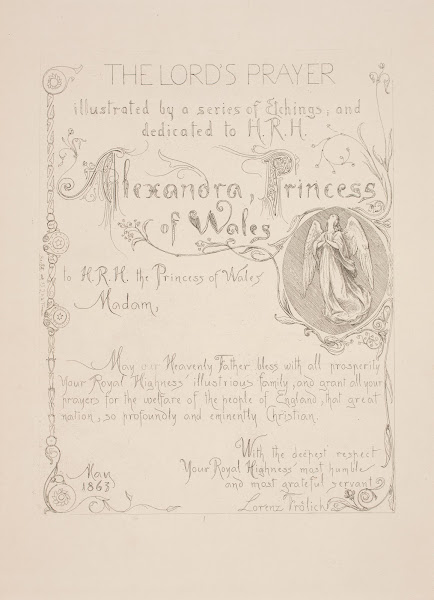 THE LORD'S PRAYER
illustrated by a series of Etchings, and
dedicated to H.R.H.
Alexandra, Princess
of Wales
to H.R.H. the Princess of Wales
Madam,
May our Heavenly Father bless with all prosperity
Your Royal Highness' illustrious family, and grant all your
prayers for the welfare of the people of England, that great
nation, so profoundly and eminently Christian.
With the deepest respect
Your Royal Highness' most humble
and most grateful servant
Lorenz Frölich.
May
1863